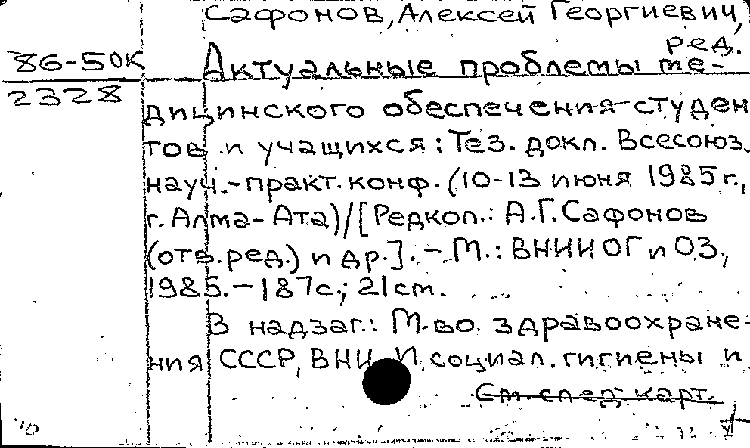 Сафонов, Алексей Георгиевич,
ред.
86-50к
2328
Актуальные проблемы ме-
дицинского обеспечения студен
тов и учащихся: Тез. докл. Всесоюз.
науч.-практ. конф. (10-13 июня 1985 г.,
г. Алма-Ата)/[Редкол.: А.Г. Сафонов
(отв. ред.) и др.]. - М.: ВНИИ ОГ и ОЗ,
1985. - 187 с.; 21 см.
В надзаг.: М-во здравоохране-
ния СССР, ВНИИ социал. гигиены и
См. след. карт.